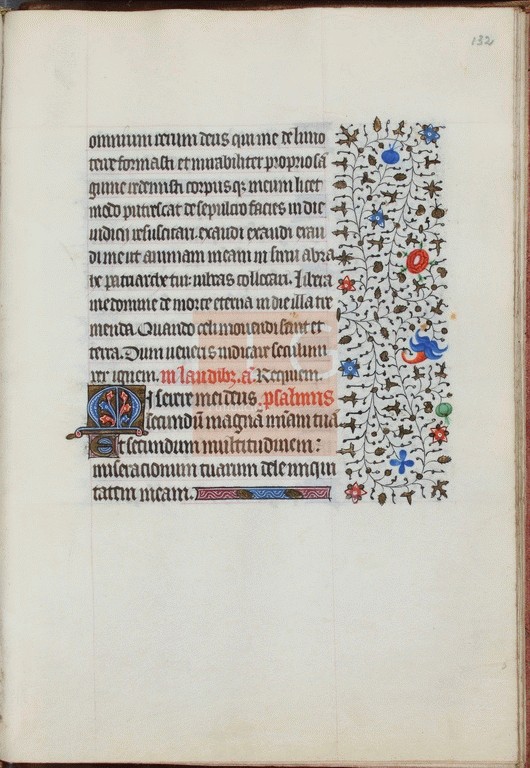 132
omnium rerum deus qui me de limo
terre formasti et mirabiliter proprio sã
guine redemisti corpusqꝫ meum licet
modo putrescat de sepulcro facies in die
iudicii resuscitari. exaudi exaudi exau
di me ut animam meam in sinu abra
he patriarche tui iubeas collocari. Libera
me domine de morte eterna in die illa tre
menda. Quando celi mouendi sunt et
terra. Dum ueneris iudicare seculum
per ignem. in laudibꝫ. añ. Requiem.
Miserere mei deus. psalmus
secundũ magnã miam tuã
Et secundum multitudinem:
miseracionum tuarum dele iniqui
tatem meam.